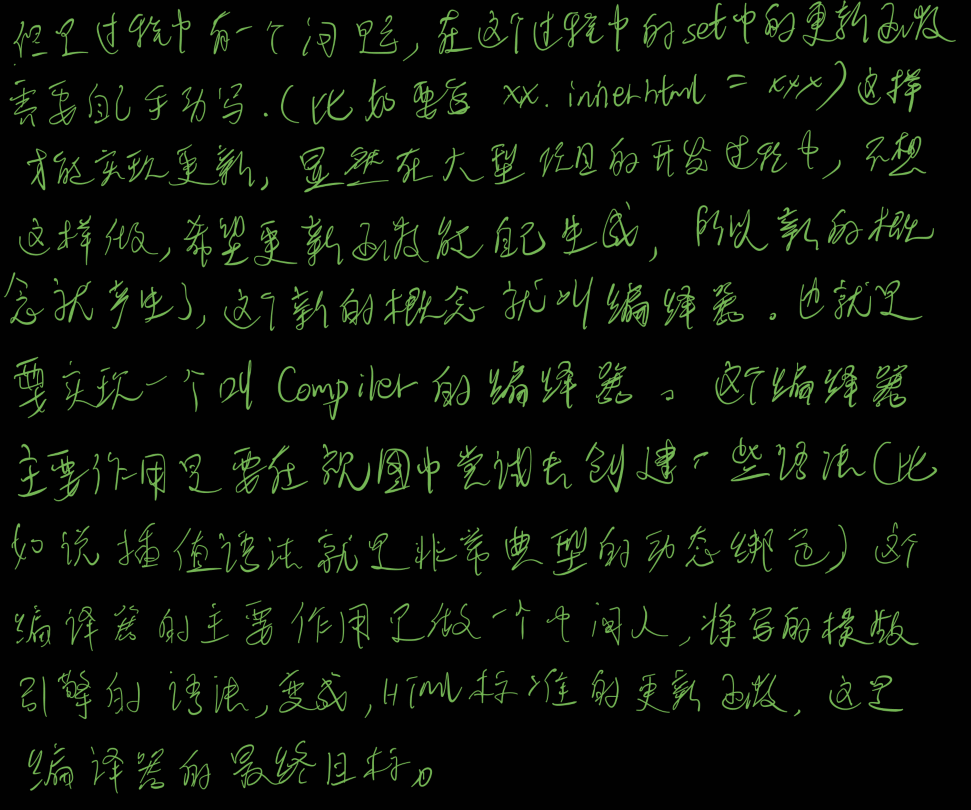 但是过程中有一个问题，在这个过程中的set中的更新函数
需要自己手动写.(比如要写 xx.innerhtml = xxx)这样
才能实现更新，显然在大型项目的开发过程中，不想
这样做，希望更新函数能自己生成，所以新的概
念就产生了，这个新的概念就叫编译器。也就是
要实现一个叫Compiler的编译器。这个编译器
主要作用是要在视图中尝试去创建一些语法(比
如说插值语法就是非常典型的动态绑定)这个
编译器的主要作用是做一个中间人，将写的模版
引擎的语法,变成,HTML标准的更新函数，这是
编译器的最终目标。